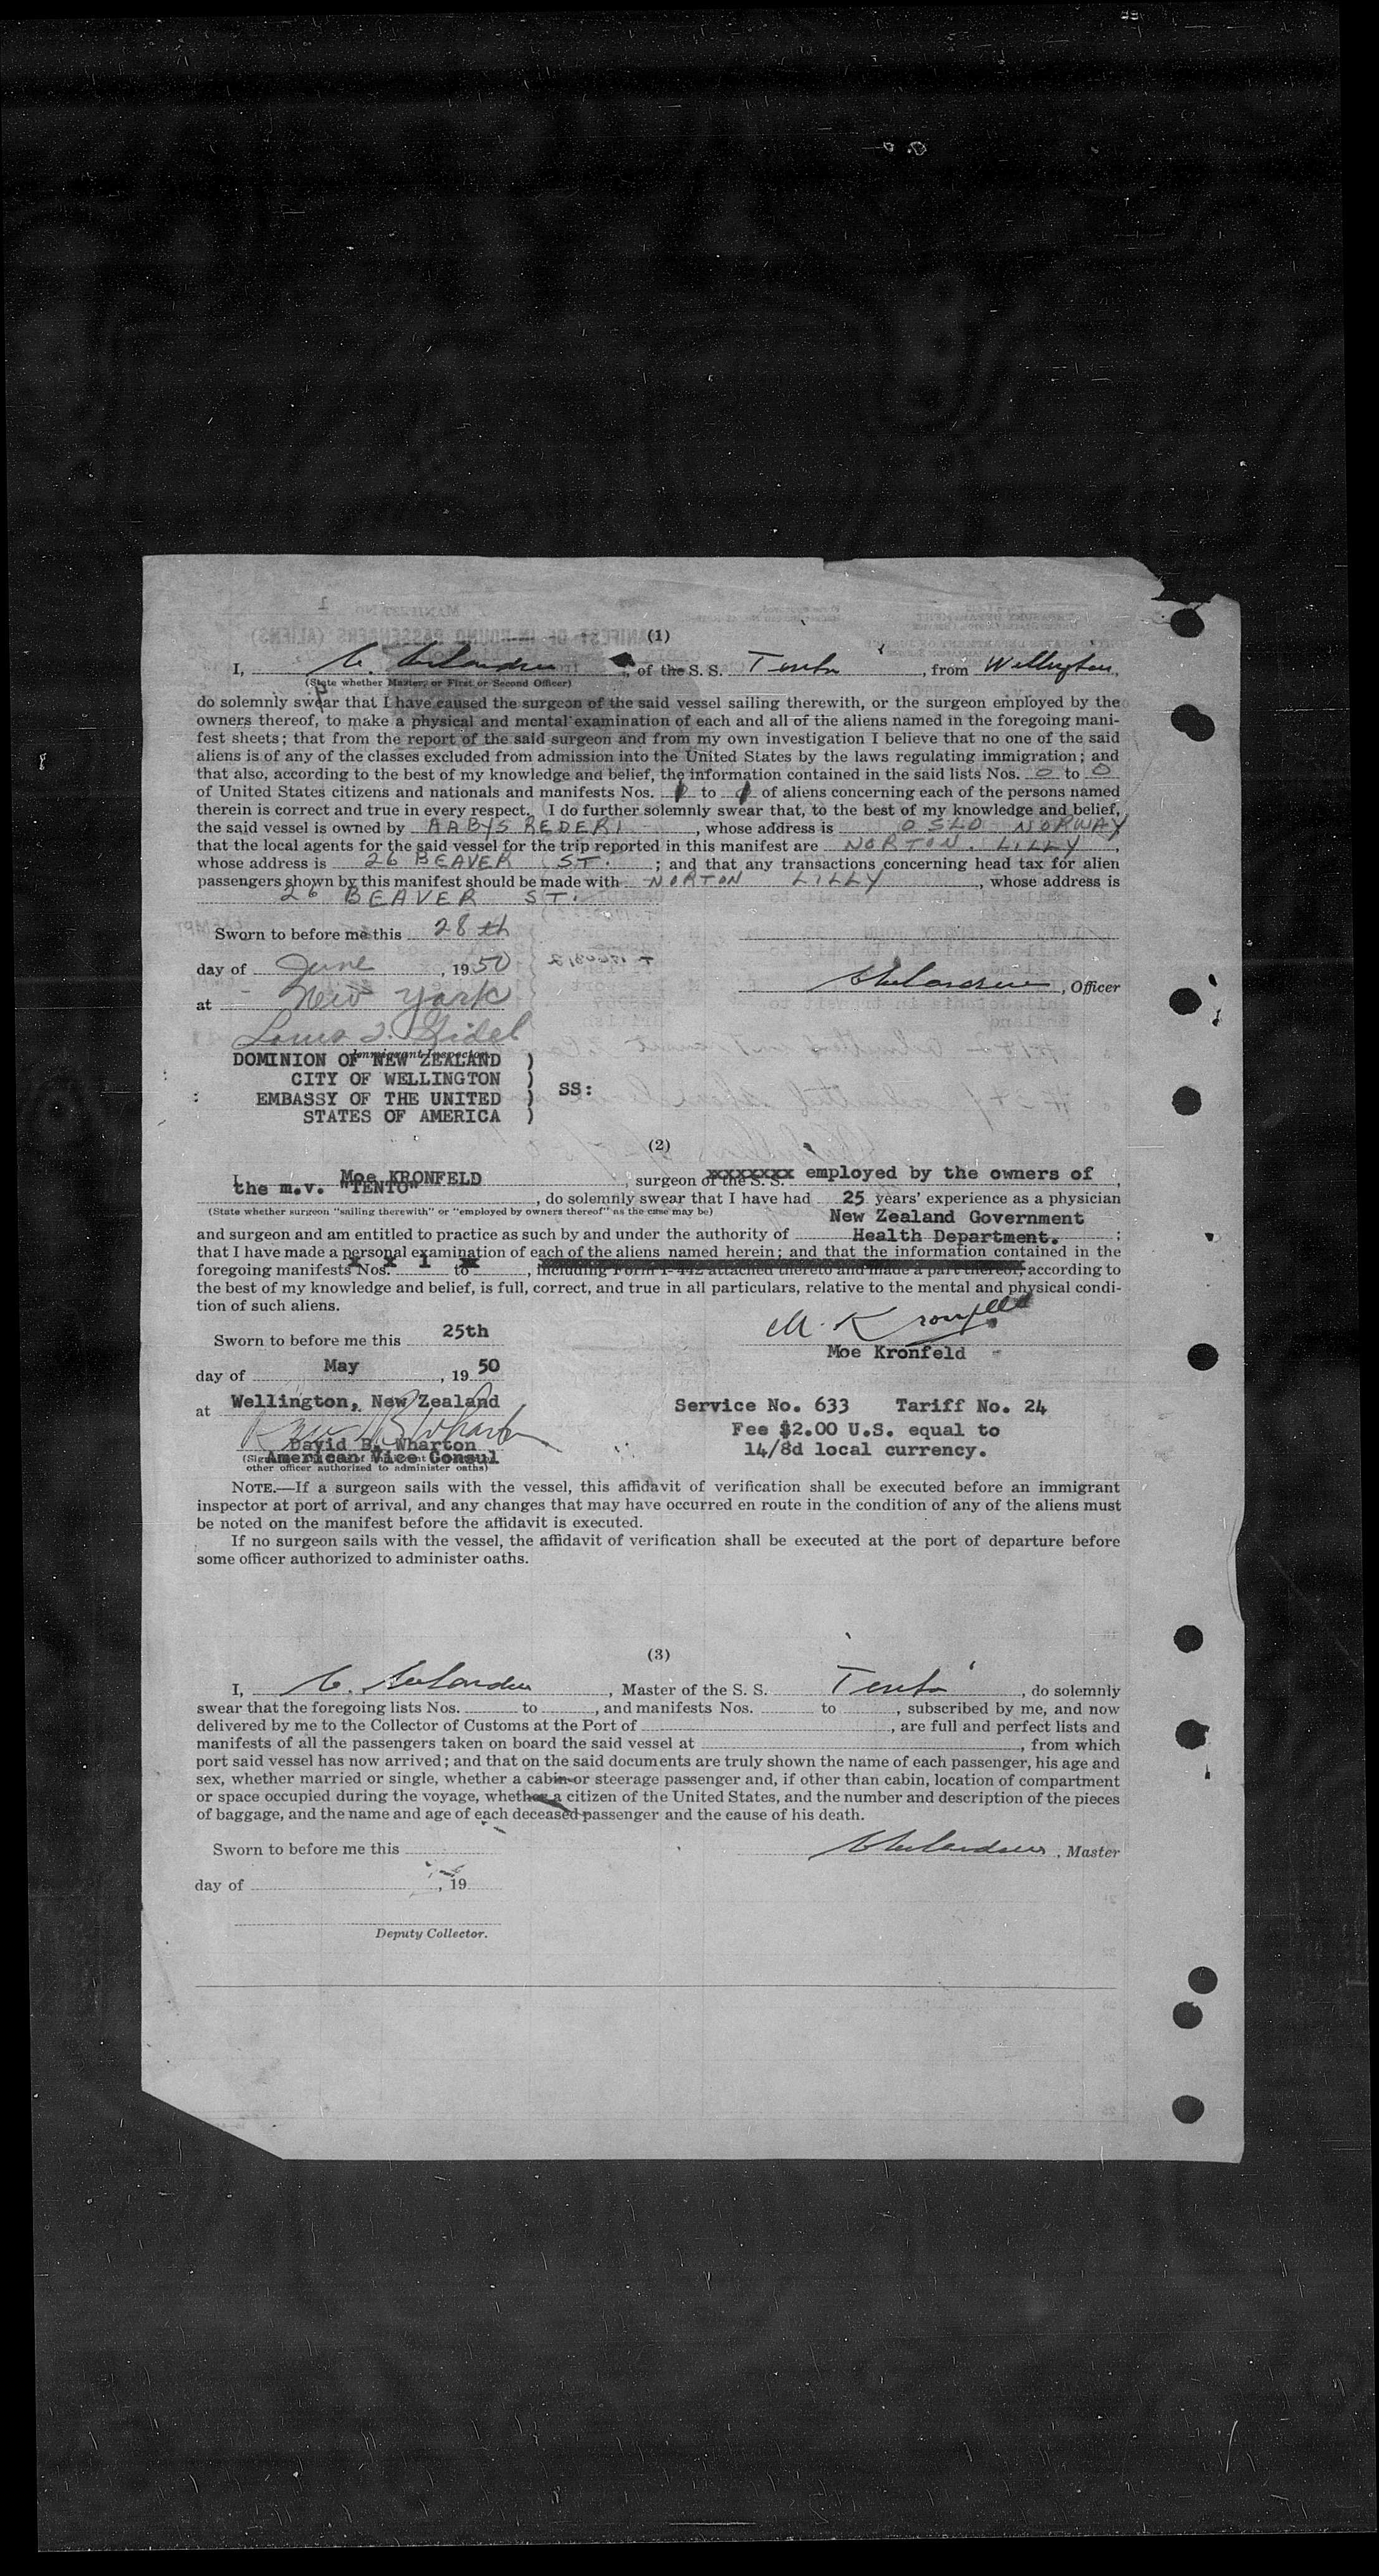 (1)
I, , of the S. S. Tento , from Wellington,
(State whether Master, or First or Second Officer)
do solemnly swear that I have caused the surgeon of the said vessel sailing therewith, or the surgeon employed by the
owners thereof, to make a physical and mental examination of each and all of the aliens named in the foregoing mani-
fest sheets; that from the report of the said surgeon and from my own investigation I believe that no one of the said
aliens is of any of the classes excluded from admission into the United States by the laws regulating immigration; and
that also, according to the best of my knowledge and belief, the information contained in the said lists Nos. 0 to 0
of United States citizens and nationals and manifests Nos. to of aliens concerning each of the persons named
therein is correct and true in every respect. I do further solemnly swear that, to the best of my knowledge and belief,
the said vessel is owned by AABYS REDERI , whose address is OSLO NORWAY
that the local agents for the said vessel for the trip reported in this manifest are NORTON. LILLY ,
whose address is 26 BEAVER ST. ; and that any transactions concerning head tax for alien
passengers shown by this manifest should be made with NORTON LILLY , whose address is
26 BEAVER ST.
Sworn to before me this 28th
day of June , 1950
, Officer
at New York
Immigrant Inspector.
DOMINION OF NEW ZEALAND )
CITY OF WELLINGTON )
SS:
EMBASSY OF THE UNITED )
STATES OF AMERICA )
(2)
I, Moe KRONFELD , surgeon of the S. S. xxxxxxx employed by the owners of ,
the m.v. "TENTO" , do solemnly swear that I have had 25 years' experience as a physician
(State whether surgeon "sailing therewith" or "employed by owners thereof" as the case may be)
New Zealand Government
and surgeon and am entitled to practice as such by and under the authority of Health Department. ;
that I have made a personal examination of each of the aliens named herein; and that the information contained in the
foregoing manifests Nos. x x 1 to x , including Form I-442 attached thereto and made a part thereof, according to
the best of my knowledge and belief, is full, correct, and true in all particulars, relative to the mental and physical condi-
tion of such aliens.
M. Kronfeld
Sworn to before me this 25th
Moe Kronfeld
day of May , 19 50
at Wellington, New Zealand
Service No. 633 Tariff No. 24
Fee $2.00 U.S. equal to
David B. Wharton
14/8d local currency.
American Vice Consul
other officer authorized to administer oaths)
NOTE.—If a surgeon sails with the vessel, this affidavit of verification shall be executed before an immigrant
inspector at port of arrival, and any changes that may have occurred en route in the condition of any of the aliens must
be noted on the manifest before the affidavit is executed.
If no surgeon sails with the vessel, the affidavit of verification shall be executed at the port of departure before
some officer authorized to administer oaths.
(3)
I, , Master of the S. S. Tento , do solemnly
swear that the foregoing lists Nos. to , and manifests Nos. to , subscribed by me, and now
delivered by me to the Collector of Customs at the Port of , are full and perfect lists and
manifests of all the passengers taken on board the said vessel at , from which
port said vessel has now arrived; and that on the said documents are truly shown the name of each passenger, his age and
sex, whether married or single, whether a cabin or steerage passenger and, if other than cabin, location of compartment
or space occupied during the voyage, whether a citizen of the United States, and the number and description of the pieces
of baggage, and the name and age of each deceased passenger and the cause of his death.
Sworn to before me this
, Master
day of , 19
Deputy Collector.